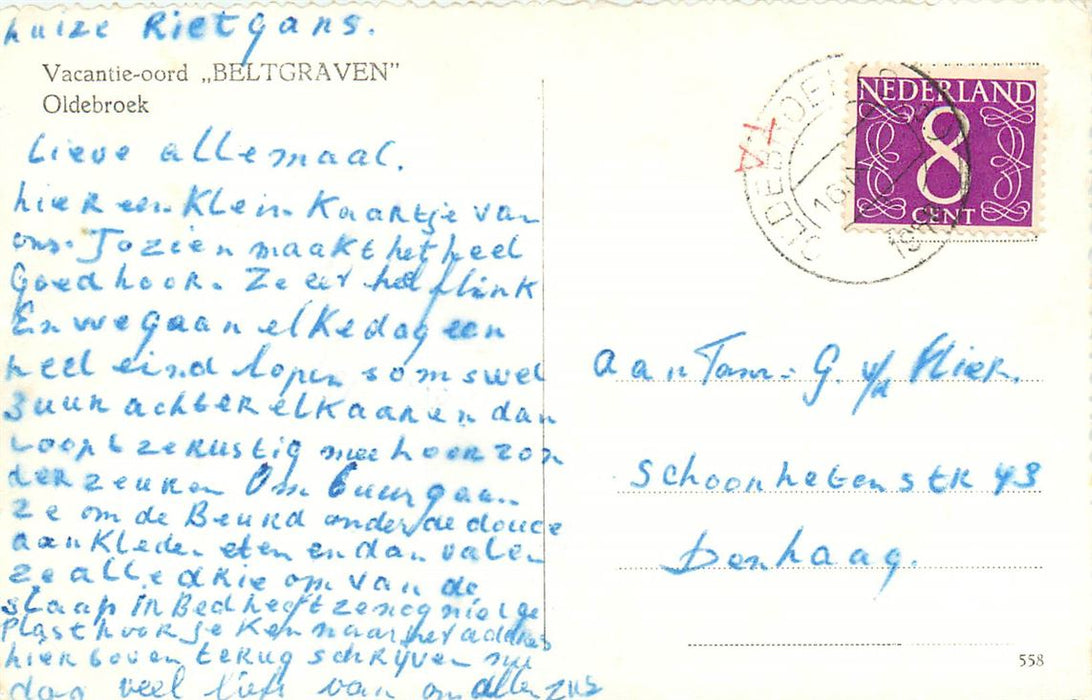 huize Rietgans.
Vacantie-oord „BELTGRAVEN”
Oldebroek
Lieve allemaal.
hier een Klein Kaartje van
ons. Jozien maakt het heel
Goed hoor. Ze eet heel flink
En we gaan elke dag een
heel eind lopen soms wel
3 uur achter elkaar en dan
loopt ze rustig mee hoor zon
der zeuren Om 6 uur gaan
ze om de Beurd onder de douce
aankleden eten en dan valen
ze alledrie om van de
slaap in Bed heeft ze nog niet ge
plast hoor je Ken naar het addres
hier boven terug schrijven nu
dag veel liefs van ons allen zus
TA
OLDEBROEK
NEDERLAND
8
CENT
aan Fam. G. v/d Vliek.
Schoonhetenstr 43
Den haag.
558